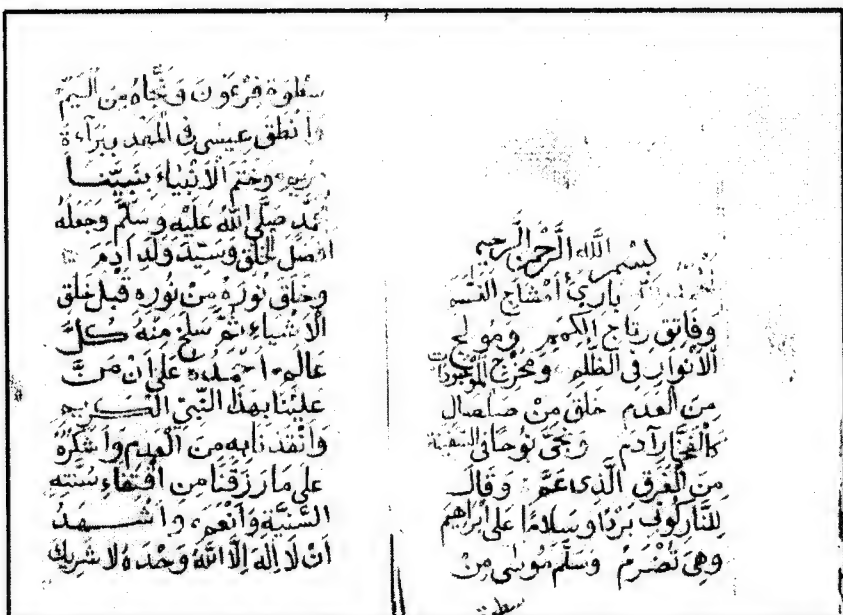 بسم الله الرحمن الرحيم
باري أمشاج النسم
وفاتق رتاج الكمم ومولج
الأنوار في الظلم ومخرج الموجودات
من العدم خلق من صلصال
كالفخار آدم ونجى نوحا في السفينة
من الغرق الذي عم وقال
للنار كوني بردا وسلاما على ابراهيم
وهي تضرم وسلم موسى من
سطوة
سطوة فرعون ونجاه من اليم
وأنطق عيسى في المهد وبراءة
وختم الأنبياء بنبينا
محمد صلى الله عليه وسلم وجعله
أفضل الخلق وسيد ولد آدم
وخلق نوره من نوره قبل خلق
الأشياء ثم سلخ منه كل
عالم أحمده على أن من
علينا بهذا النبي الكريم
وأنقذنا به من العدم وأشكره
على ما رزقنا من اقتفاء سنته
السنية وأنعم وأشهد
أن لا إله إلا الله وحده لا شريك